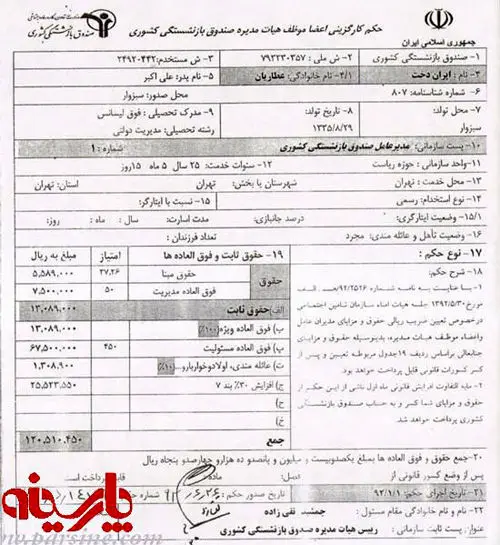 حکم کارگزینی اعضا موظف هیات مدیره صندوق بازنشستگی کشوری
جمهوری اسلامی ایران
صندوق بازنشستگی کشوری
۱- صندوق بازنشستگی کشوری
۲- ش ملی : ۷۹۳۲۳۰۳۵۷
۳- ش مستخدم: ۲۴۹۲۰۴۴۲
۴- نام : ایران دخت
۴/۱- نام خانوادگی: عطاریان
۵- نام پدر: علی اکبر
۶- شماره شناسنامه: ۸۰۷
محل صدور: سبزوار
۷- محل تولد: سبزوار
۸- تاریخ تولد: ۱۳۳۵/۸/۲۹
۹- مدرک تحصیلی: فوق لیسانس
رشته تحصیلی: مدیریت دولتی
۱۰- پست سازمانی: مدیرعامل صندوق بازنشستگی کشوری
شماره : ۱
۱۱- واحد سازمانی : حوزه ریاست
۱۲- سنوات خدمت: ۲۵ سال ۵ ماه ۱۵روز
۱۳- محل خدمت : تهران
شهرستان یا بخش: تهران
استان: تهران
۱۴- نوع استخدام: رسمی
۱۵- نسبت با ایثارگر:
۱۵/۱- وضعیت ایثارگری:
درصد جانبازی:
مدت اسارت: سال : ماه : روز:
۱۶- وضعیت تأهل و عائله مندی: مجرد
تعداد فرزندان :
۱۷- نوع حکم :
۱۸- شرح حکم:
بنا بعنایت به نامه شماره ۹۲/۲۵۲۶/ الف
مورخ ۱۳۹۲/۵/۳۰ جلسه هیات امناء سازمان تامین اجتماعی
درخصوص تعیین ضریب ریالی حقوق و مزایای مدیران عامل
واعضاء موظف هیات مدیره، بدینوسیله حقوق و مزایای
جنابعالی براساس ردیف ۱۹ جدول مربوطه تعیین و پس از
کسر کسورات قانونی قابل پرداخت خواهد بود.
مابه التفاوت افزایش قانونی ماه اول ناشی از این حکم از
حقوق و مزایای شما کسر و به حساب صندوق بازنشستگی
کشوری پرداخت خواهد شد.
۱۹- حقوق ثابت و فوق العاده ها
امتیاز
مبلغ به ریال
حقوق
حقوق مبنا ۳۷.۲۶ ۵,۵۸۹,۰۰۰
فوق العاده مدیریت ۵۰ ۷,۵۰۰,۰۰۰
الف) حقوق ثابت ۱۳,۰۸۹,۰۰۰
ب) فوق العاده ویژه ۱۰۰٪ ۱۳,۰۸۹,۰۰۰
پ) فوق العاده مسئولیت ۴۵۰ ۶۷,۵۰۰,۰۰۰
ت) عائله مندی، اولادوخواربارو... ۱۰٪ ۱,۳۰۸,۹۰۰
ج) افزایش ۳۰٪ بند ۷ ۲۵,۵۲۳,۵۵۰
ح)
خ)
جمع ۱۲۰,۵۱۰,۴۵۰
۲۰- جمع حقوق و فوق العاده ها بمبلغ یکصدوبیست و میلیون و پانصدو ده هزارو چهارصدو پنجاه ریال
پس از وضع کسور قانونی از فصل ماده قابل پرداخت است.
۲۱- تاریخ اجرای حکم: ۹۲/۱/۱
تاریخ صدور حکم :
شماره حکم
۲۲- نام و نام خانوادگی مقام مسئول : جمشید تقی زاده
عنوان پست ثابت سازمانی : رییس هیات مدیره صندوق بازنشستگی کشوری
پارسینه
www.parsine.com